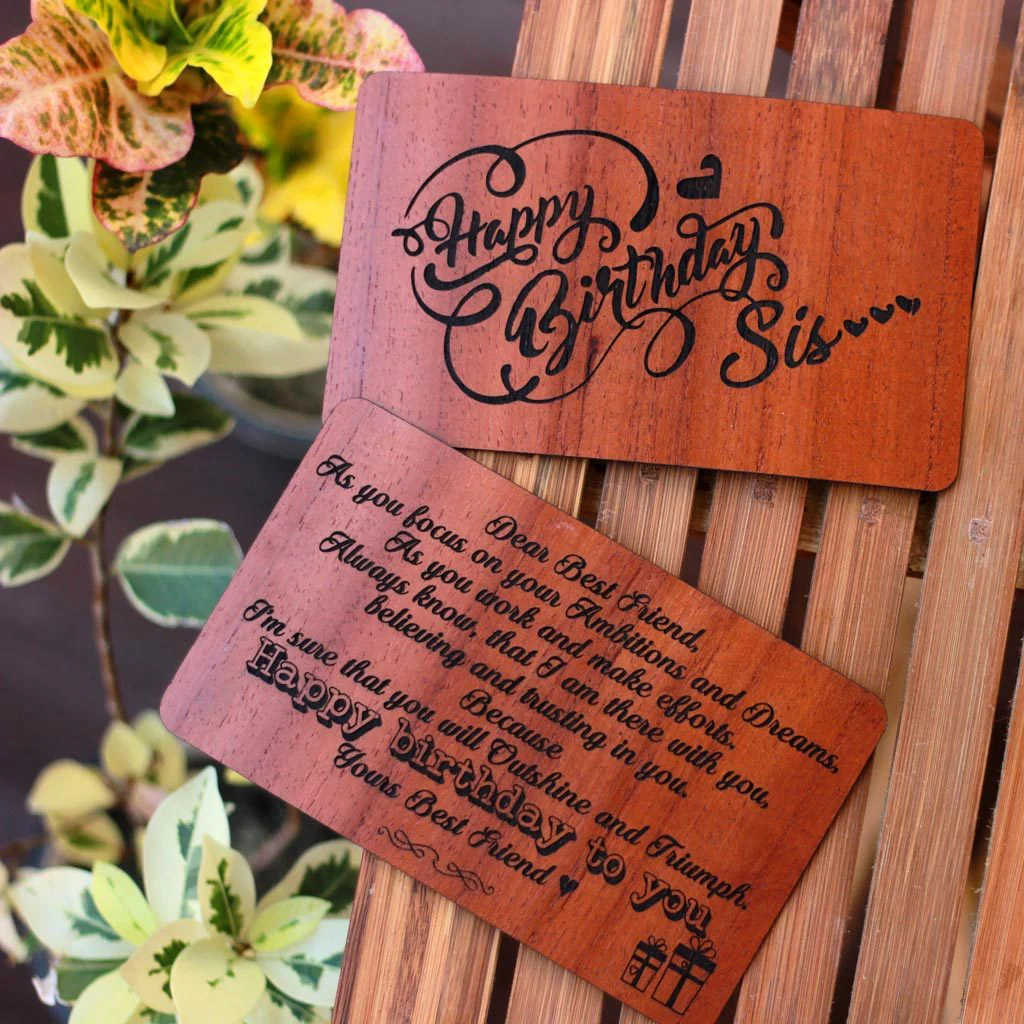 Happy
Birthday
Sis
Dear Best Friend,
As you focus on your Ambitions and Dreams,
As you work and make efforts.
Always know, that I am there with you,
believing and trusting in you.
Because
I'm sure that you will Outshine and Triumph.
Happy birthday to you
Yours Best Friend